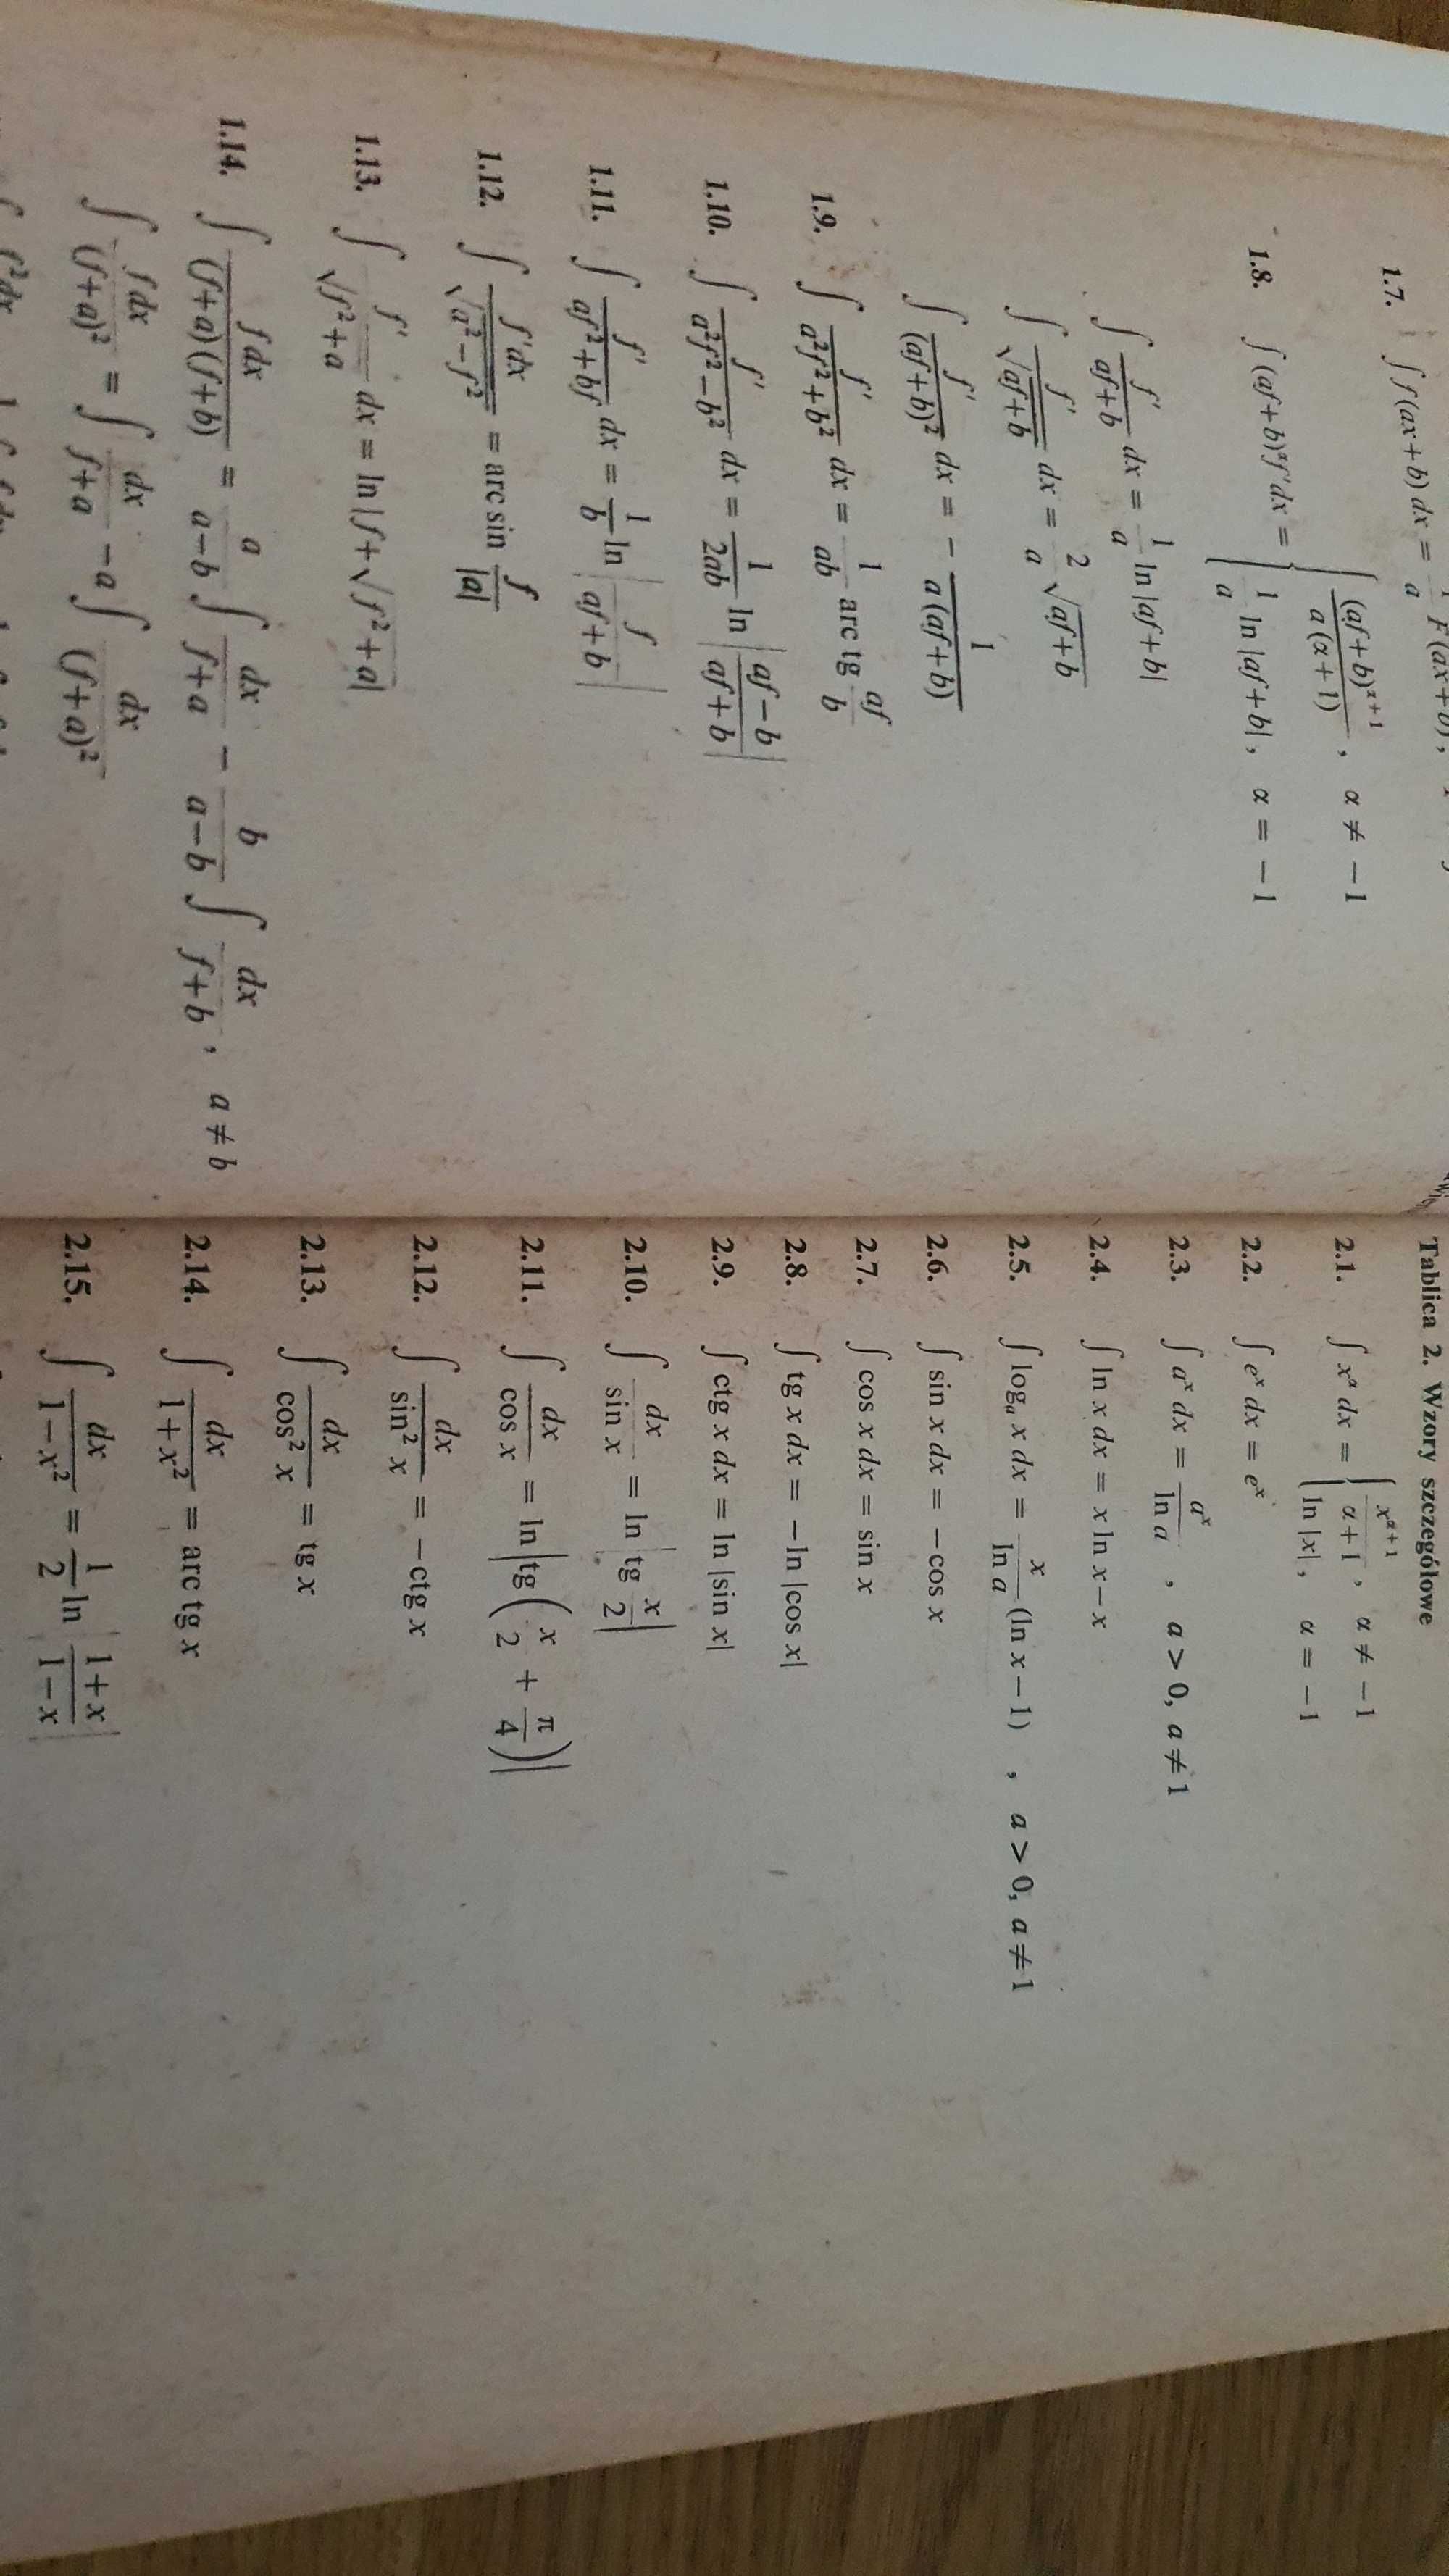 1.7. ∫ f(ax+b) dx = 1/a F(ax+b),
1.8. ∫ (af+b)^α f' dx = { (af+b)^(α+1) / a(α+1), α ≠ −1
1/a ln |af+b|, α = −1
∫ f'/(af+b) dx = 1/a ln |af+b|
∫ f'/√(af+b) dx = 2/a √(af+b)
∫ f'/(af+b)² dx = − 1/(a(af+b))
1.9. ∫ f'/(a²f²+b²) dx = 1/(ab) arc tg af/b
1.10. ∫ f'/(a²f²−b²) dx = 1/(2ab) ln |(af−b)/(af+b)|
1.11. ∫ f'/(af²+bf) dx = 1/b ln |f/(af+b)|
1.12. ∫ f'dx/√(a²−f²) = arc sin f/|a|
1.13. ∫ f'/√(f²+a) dx = ln |f+√(f²+a)|
1.14. ∫ f dx/((f+a)(f+b)) = a/(a−b) ∫ dx/(f+a) − b/(a−b) ∫ dx/(f+b), a ≠ b
∫ f dx/(f+a)² = ∫ dx/(f+a) − a ∫ dx/(f+a)²
Tablica 2. Wzory szczegółowe
2.1. ∫ x^α dx = { x^(α+1)/(α+1), α ≠ −1
ln |x|, α = −1
2.2. ∫ e^x dx = e^x
2.3. ∫ a^x dx = a^x/ln a , a > 0, a ≠ 1
2.4. ∫ ln x dx = x ln x − x
2.5. ∫ log_a x dx = x/ln a (ln x − 1) , a > 0, a ≠ 1
2.6. ∫ sin x dx = −cos x
2.7. ∫ cos x dx = sin x
2.8. ∫ tg x dx = −ln |cos x|
2.9. ∫ ctg x dx = ln |sin x|
2.10. ∫ dx/sin x = ln |tg x/2|
2.11. ∫ dx/cos x = ln |tg (x/2 + π/4)|
2.12. ∫ dx/sin² x = −ctg x
2.13. ∫ dx/cos² x = tg x
2.14. ∫ dx/(1+x²) = arc tg x
2.15. ∫ dx/(1−x²) = 1/2 ln |(1+x)/(1−x)|